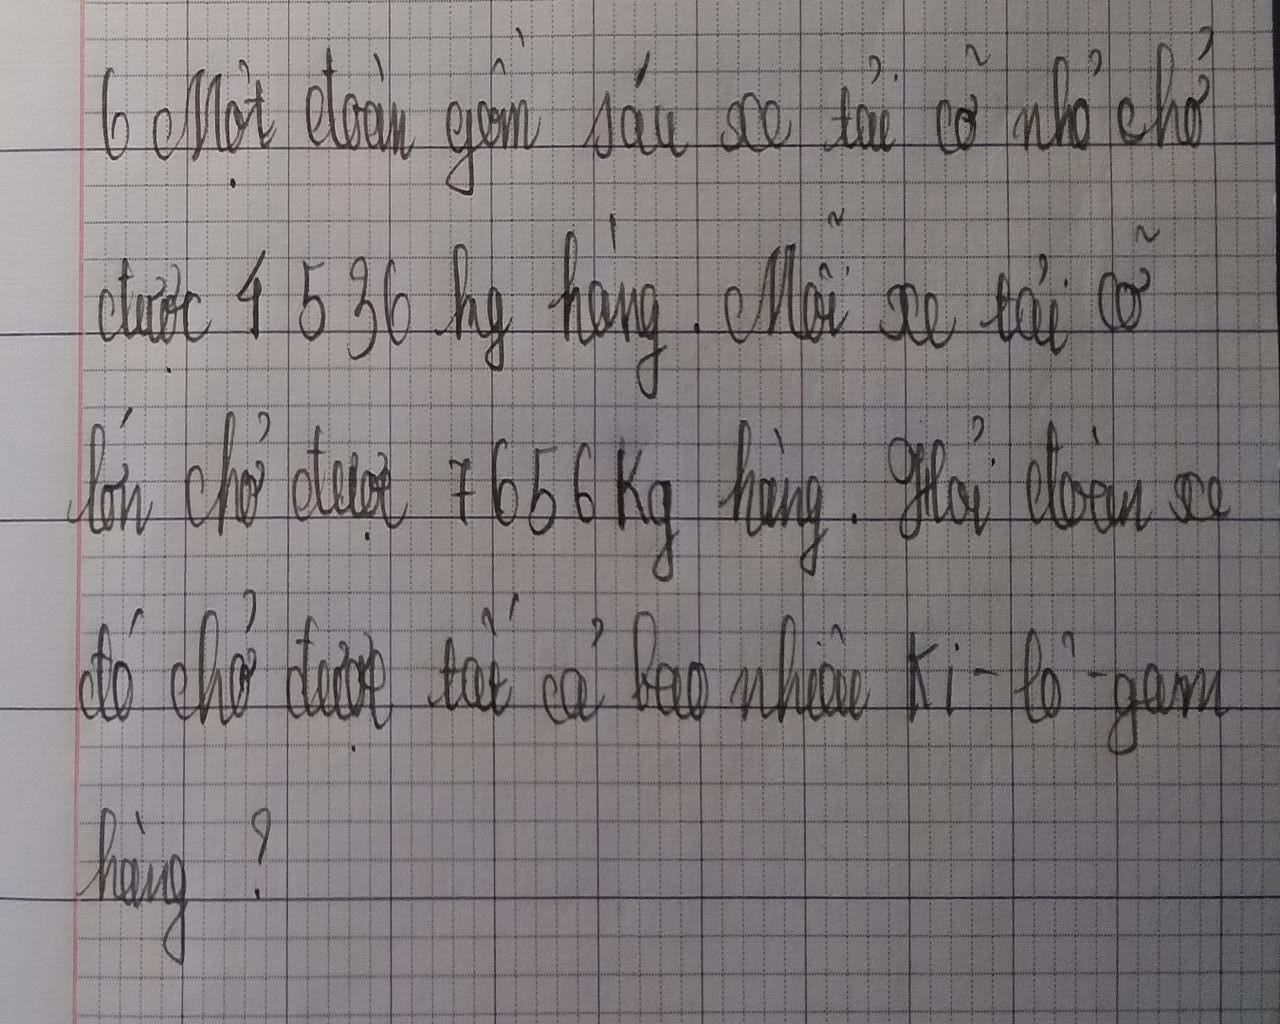 6 Một đoàn gồm sáu xe tải cỡ nhỏ chở
được 4 536 kg hàng. Mỗi xe tải cỡ
lớn chở được 7656 Kg hàng. Hỏi đoàn xe
đó chở được tất cả bao nhiêu Ki-lô-gam
hàng ?